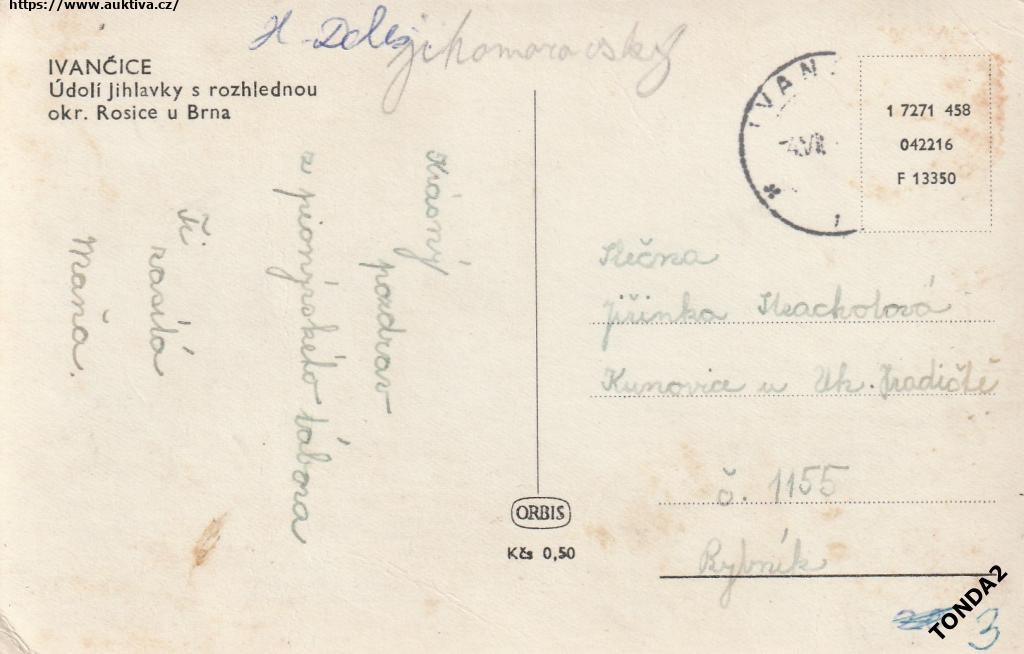 https://www.auktiva.cz/
H. Dolez. jihomoravský
IVANČICE
Údolí Jihlavky s rozhlednou
okr. Rosice u Brna
IVAN
1 7271 458
042216
F 13350
Krásný
pozdrav
z pionýrského tábora
Ti
zasílá
Maňa.
Slečna
Jiřinka
Kunovice u Uh. Hradiště
č. 1155
Rybník
ORBIS
Kčs 0,50
TONDA2
3